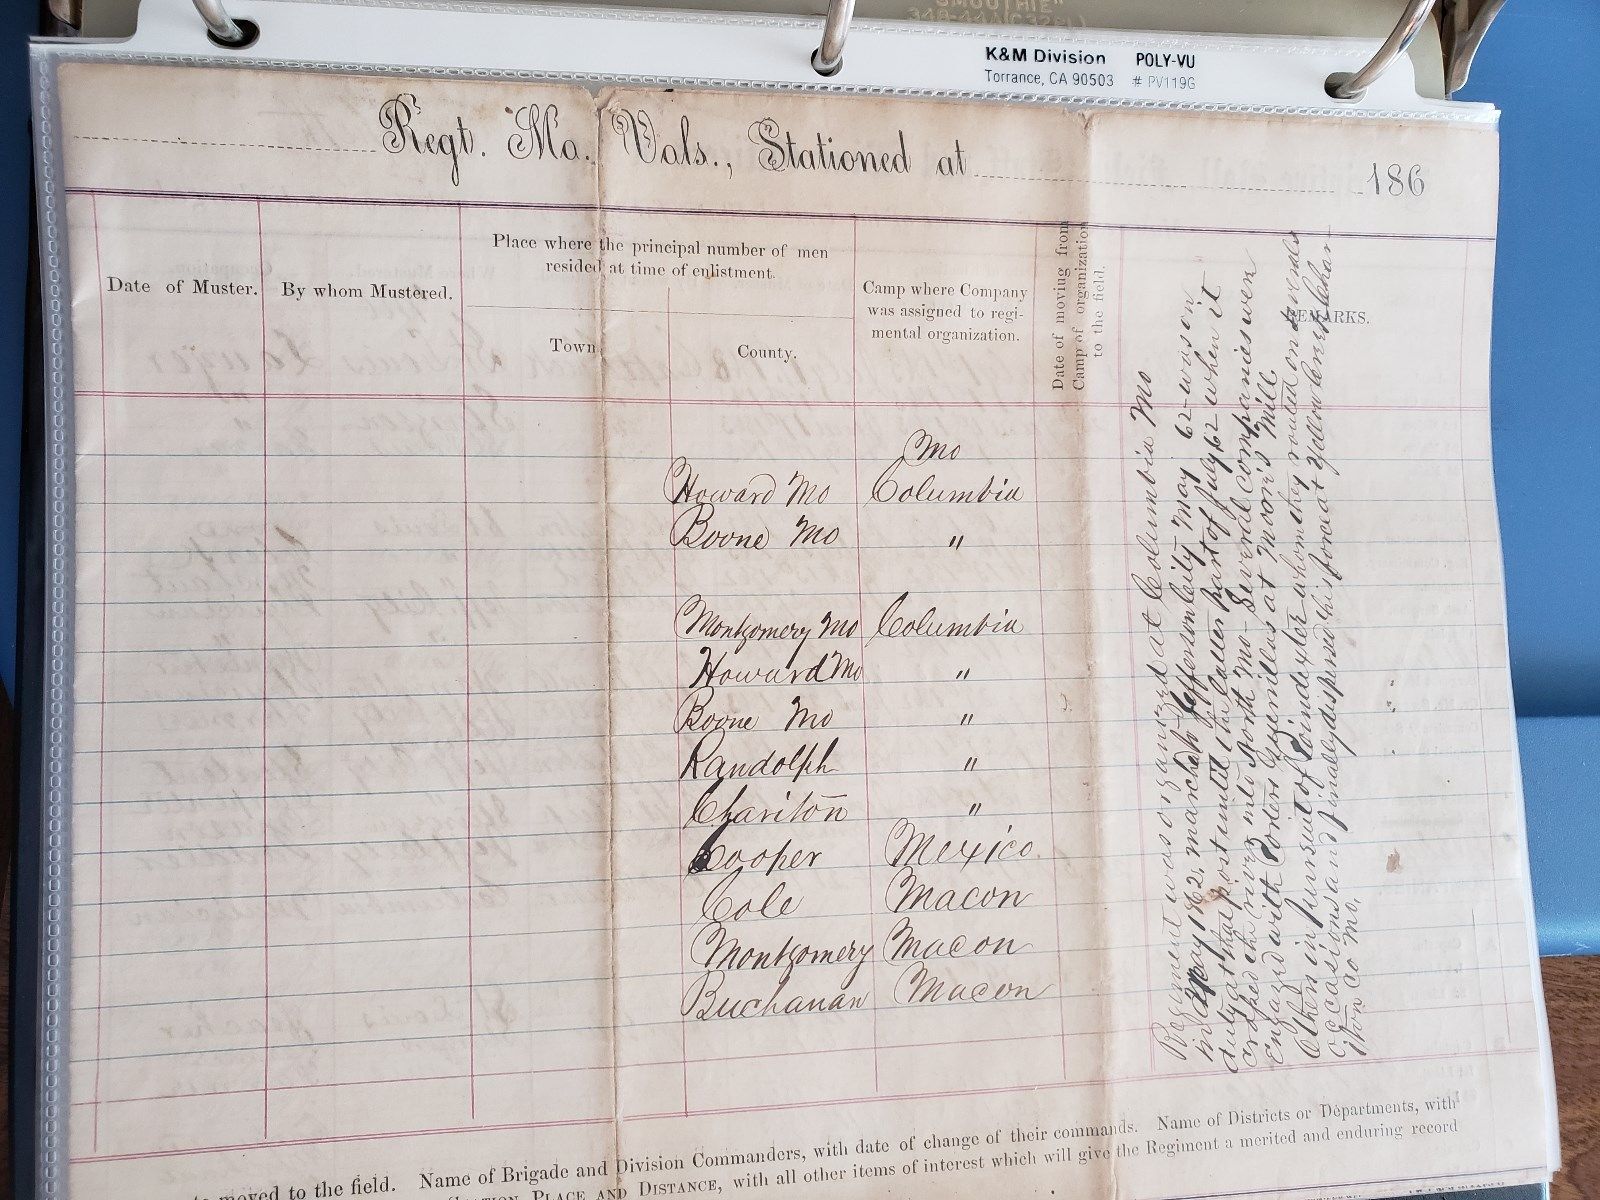 SMOOTHIE"
K&M Division POLY-VU
Torrance, CA 90503 # PV119G
Regt. Mo. Vols., Stationed at 186
Date of Muster.
By whom Mustered.
Place where the principal number of men
resided at time of enlistment.
Town
County.
Camp where Company
was assigned to regi-
mental organization.
Date of moving from
Camp of organization
to the field.
REMARKS.
Mo
Howard Mo Columbia
Boone Mo "
Montgomery Mo Columbia
Howard Mo "
Boone Mo "
Randolph "
Chariton "
Cooper Mexico
Cole Macon
Montgomery Macon
Buchanan Macon
Regiment was organized at Columbia Mo
in May 1862, marched to Jefferson City May 62 was on
duty at that post until the latter part of July 62 when it
crossed the river into North Mo - Several Companies were
Engaged with Porters Guerrillas at Moore's Mill.
Others in pursuit of Poindexter whom they routed on several
occasions and finally dispersed his force at Yellow Creek Char-
iton Co Mo.
moved to the field. Name of Brigade and Division Commanders, with date of change of their commands. Name of Districts or Departments, with
PLACE AND DISTANCE, with all other items of interest which will give the Regiment a merited and enduring record